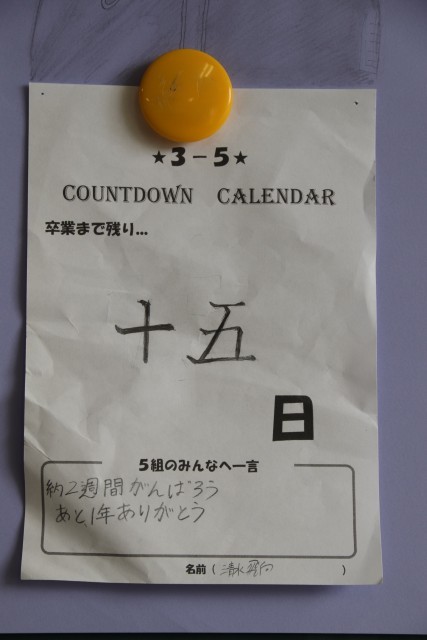 ★3－5★
COUNTDOWN CALENDAR
卒業まで残り...
十五
日
5組のみんなへ一言
約2週間がんばろう
あと1年ありがとう
名前（清水 ）